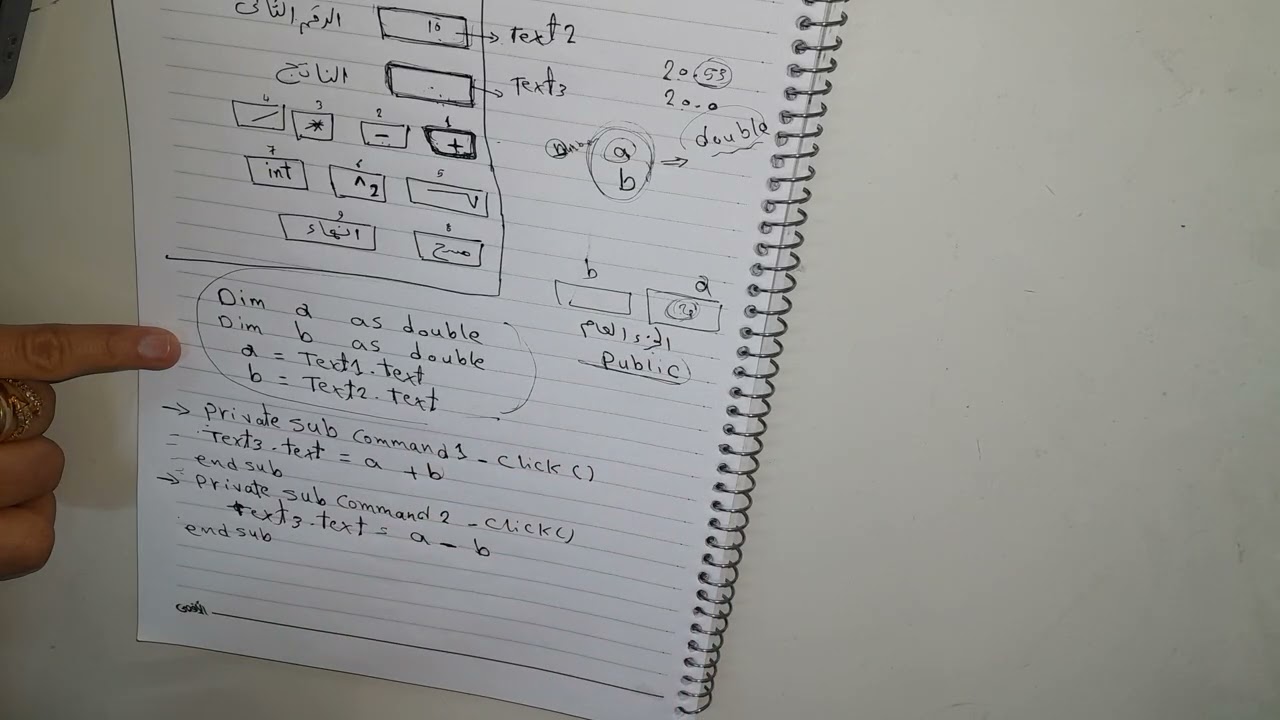 الرقم الثاني 10 → Text2
الناتج → Text3
20.53
20.0
double
a
b
4 3 2 1
/ * - +
7 6 5
int ^2 √
9 8
انتهاء مسح
b a
الجزء العام
Public
Dim a as double
Dim b as double
a = Text1.text
b = Text2.text
→ Private sub Command1_Click()
Text3.text = a + b
end sub
→ Private sub Command2_Click()
Text3.text = a - b
end sub